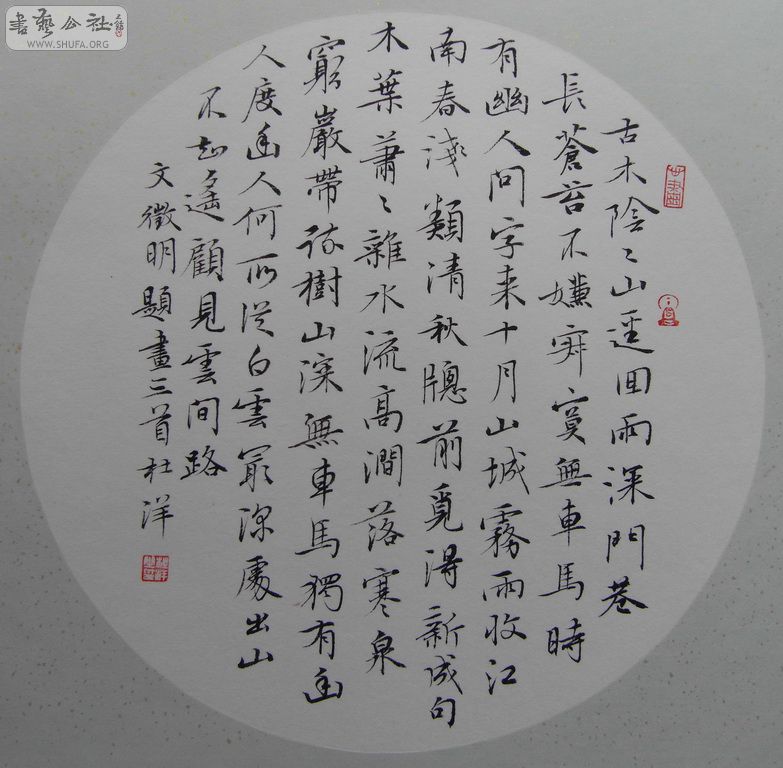 古木陰〻山逕回雨深門巷
長蒼苔不嫌寂寞無車馬時
有幽人問字来十月山城霧雨收江
南春淺類清秋牕前覓得新成句
木葉蕭〻雜水流高澗落寒泉
窮巖帶疏樹山深無車馬獨有幽
人度幽人何所從白雲最深處出山
不知遙顧見雲間路
文徵明題畫三首杜洋
書藝公社
WWW.SHUFA.ORG